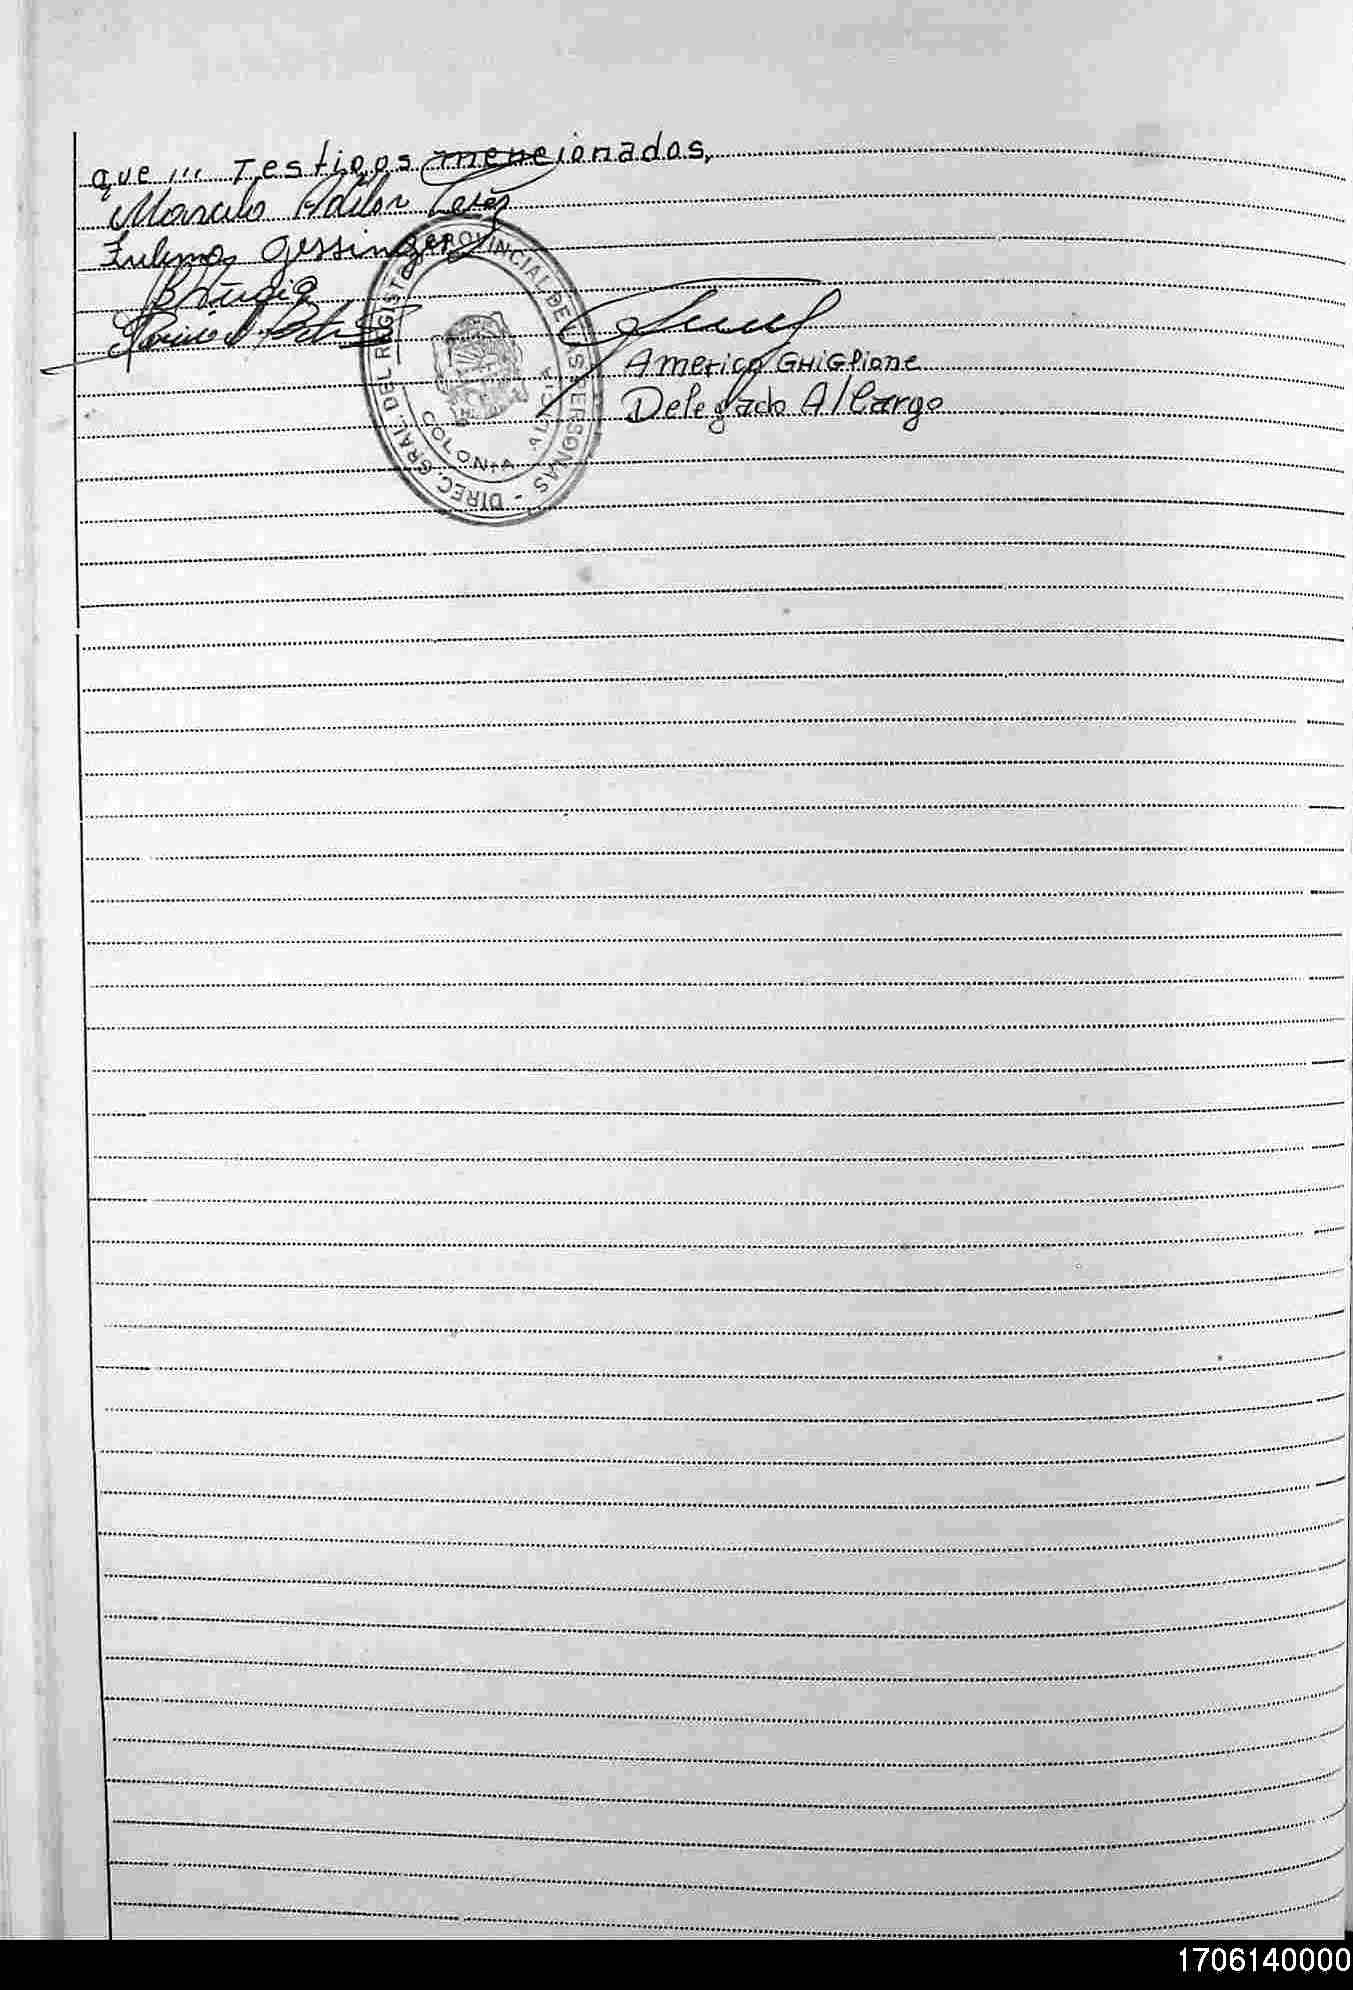 que ,,, Testigos mencionados,
Marcelo Adilor
Zulema Gessinger
DIREC. GRAL. DEL REGISTO PROVINCIAL DE LAS PERSONAS -
COLONIA ALICIA
Americo GHiGlione
Delegado A/Cargo
1706140000